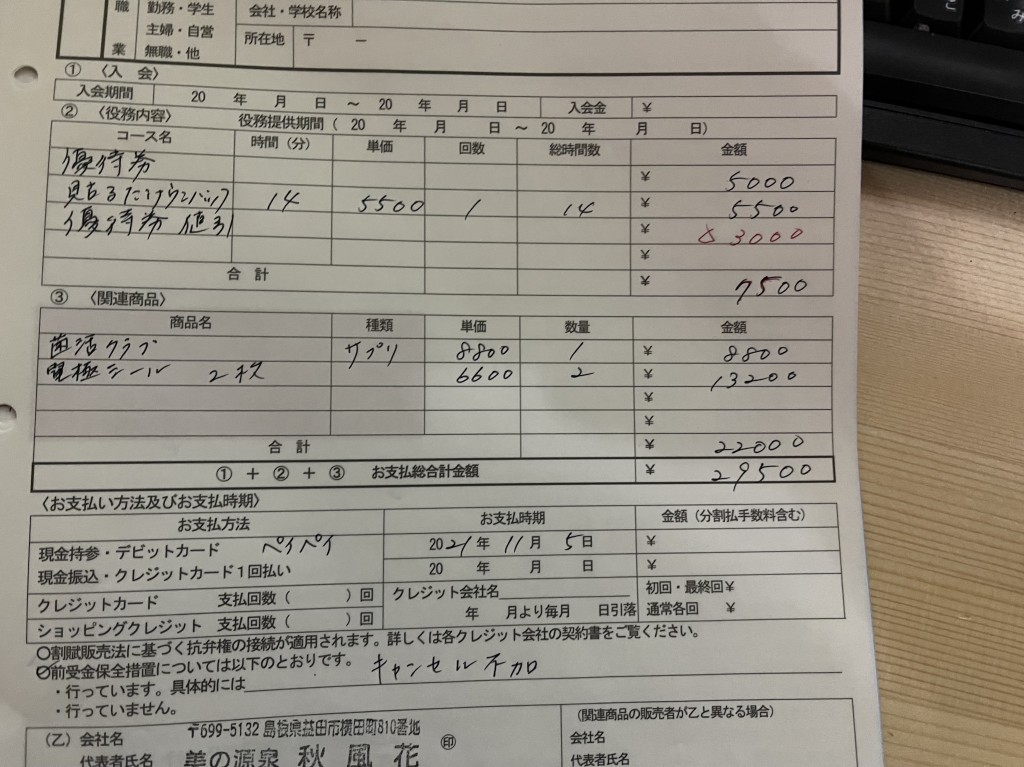 職 勤務・学生 会社・学校名称
主婦・自営
業 無職・他 所在地 〒 －
① 〈入 会〉
入会期間 20 年 月 日 ～ 20 年 月 日 入会金 ¥
② 〈役務内容〉 役務提供期間（ 20 年 月 日 ～ 20 年 月 日）
コース名 時間（分） 単価 回数 総時間数 金額
優待券 ¥ 5000
14 5500 1 14 ¥ 5500
優待券 値引 ¥ △3000
¥
合 計 ¥ 7500
③ 〈関連商品〉
商品名 種類 単価 数量 金額
菌活クラブ サプリ 8800 1 ¥ 8800
電極シール 2枚 6600 2 ¥ 13200
¥
¥
合 計 ¥ 22000
① ＋ ② ＋ ③ お支払総合計金額 ¥ 29500
〈お支払い方法及びお支払時期〉
お支払方法 お支払時期 金額（分割払手数料含む）
現金持参・デビットカード ペイペイ 2021年 11月 5日 ¥
現金振込・クレジットカード1回払い 20 年 月 日 ¥
クレジットカード 支払回数（ ）回 クレジット会社名 初回・最終回¥
ショッピングクレジット 支払回数（ ）回 年 月より毎月 日引落 通常各回 ¥
○割賦販売法に基づく抗弁権の接続が適用されます。詳しくは各クレジット会社の契約書をご覧ください。
前受金保全措置については以下のとおりです。 キャンセル不可
・行っています。具体的には
・行っていません。
〒699-5132 島根県益田市横田町810番地 （関連商品の販売者が乙と異なる場合）
（乙）会社名 美の源泉 秋風花 印 会社名
代表者氏名 代表者氏名